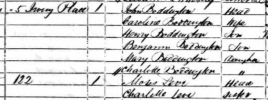 5 Percy Place 1 John Boddington Head
Caroline Boddington Wife
Henry Boddington Son
Benjamin Boddington Son
Mary Boddington Daughter
Charlotte Boddington "
122 1 Love Head
Charlotte Love